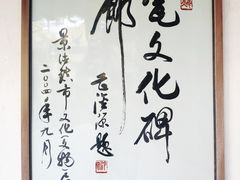 瓷文化碑
廊
题
景德镇市文化(文物)
二〇〇四年九月